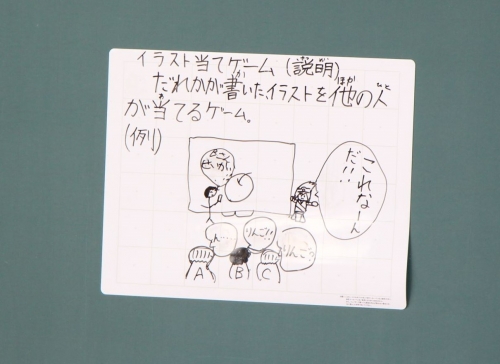 イラスト当てゲーム (説明)
だれかが書いた、イラストを他の人
が当てるゲーム。
(例)
これなーん
だ!!
りんご!!
りんご?
A B C